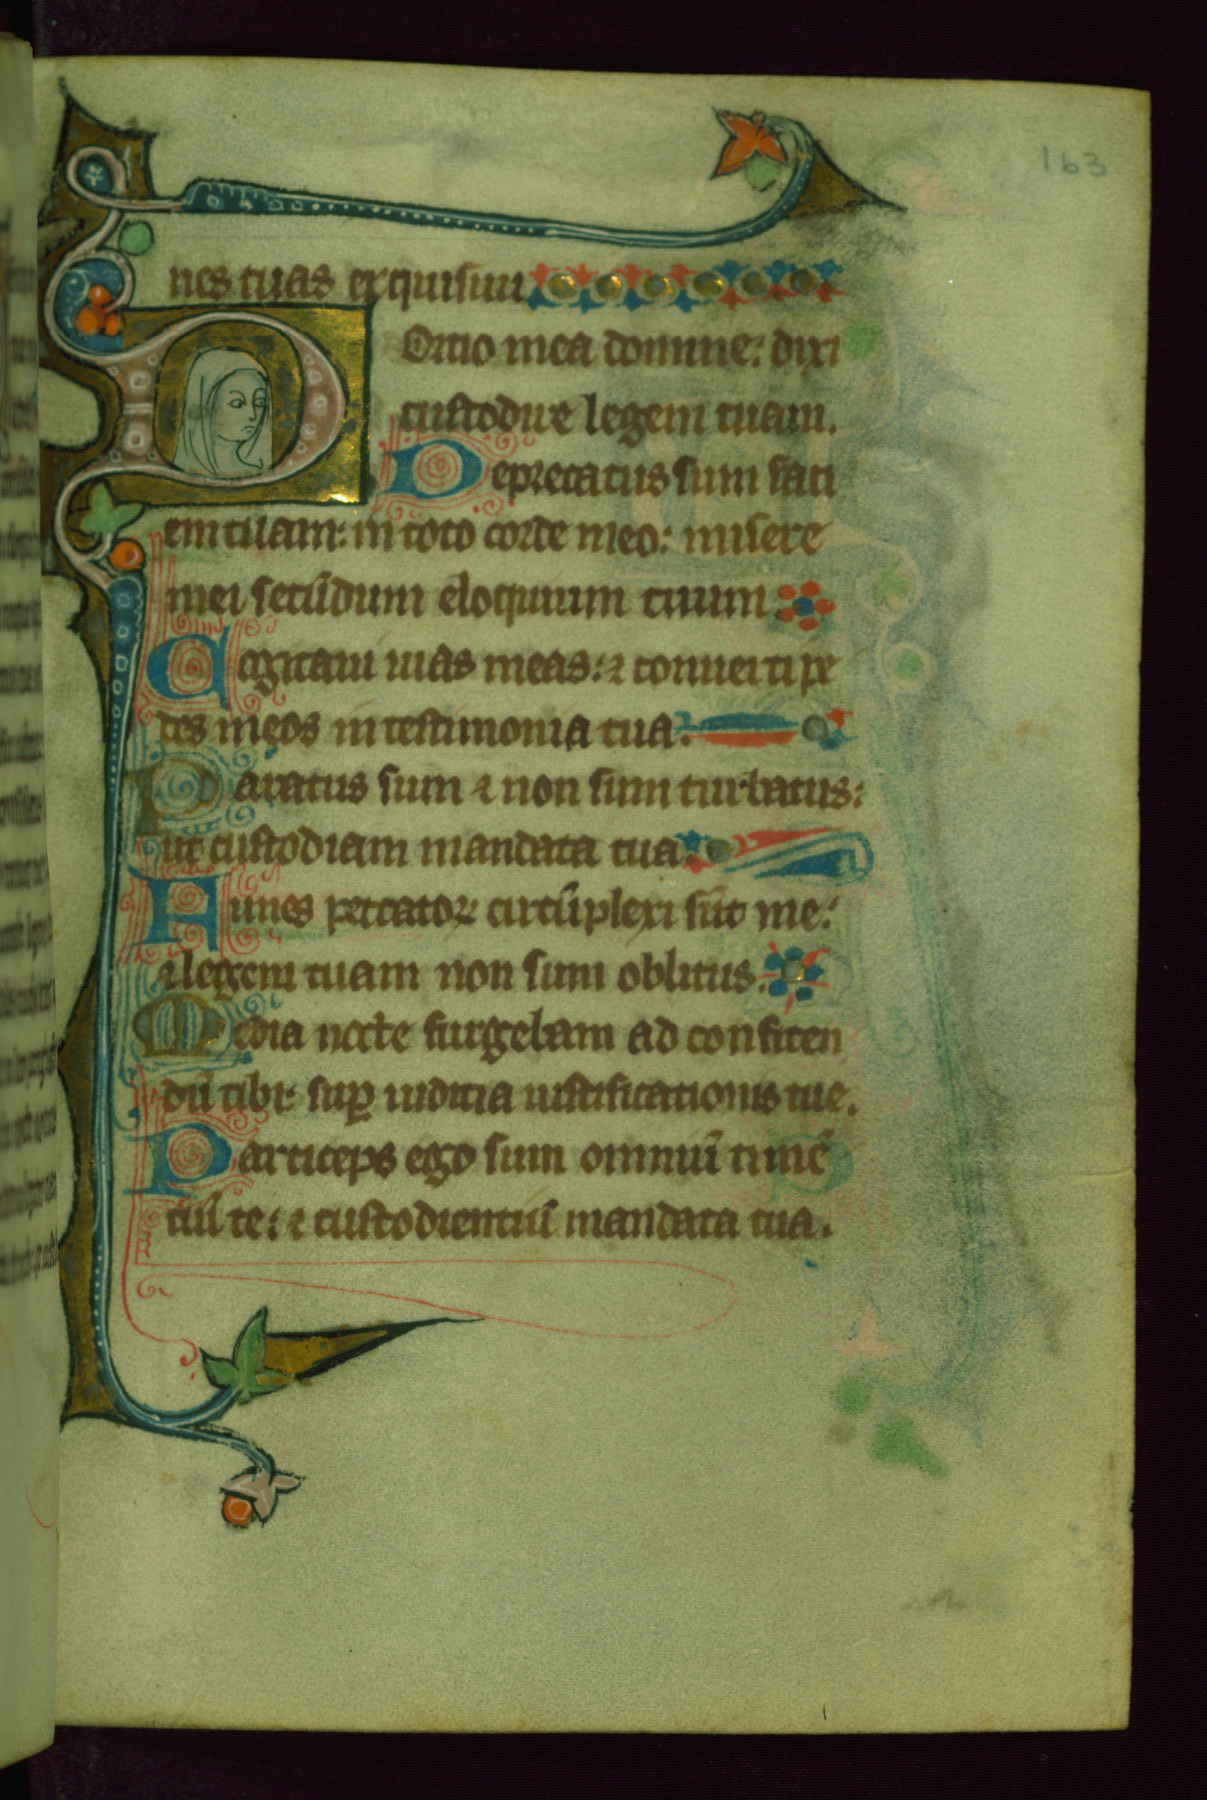 163
nes tuas exquisiui
Portio mea domine: dixi
custodire legem tuam.
Deprecatus sum faci
em tuam: in toto corde meo: misere
mei secūdum eloquium tuum
Cogitaui uias meas: ⁊ conuerti pe
des meos in testimonia tua.
Paratus sum ⁊ non sum turbatus:
ut custodiam mandata tua.
Funes peccatoꝝ circūplexi sūt me:
⁊ legem tuam non sum oblitus.
Media nocte surgebam ad confiten
dū tibi: suꝑ iudicia iustificationis tue.
Particeps ego sum omniū timē
tiū te: ⁊ custodientiū mandata tua.